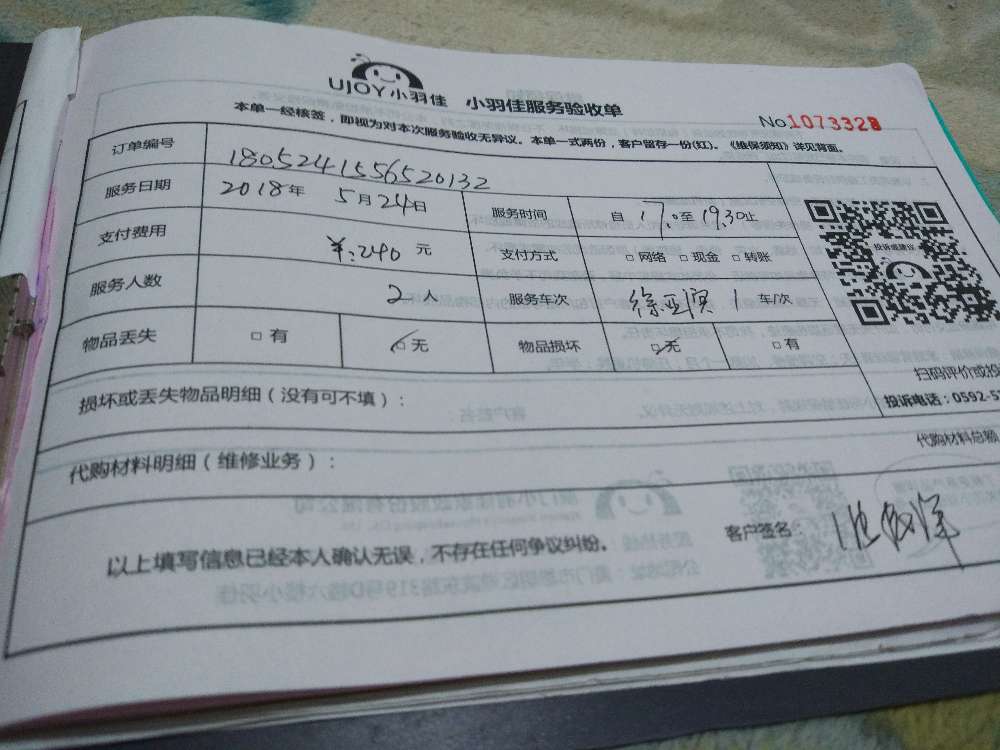 UJOY小羽佳 小羽佳服务验收单
No.1073328
本单一经核签，即视为对本次服务验收无异议。本单一式两份，客户留存一份(红)。《维保须知》详见背面。
订单编号 1805241556520132
服务日期 2018年 5月24日 服务时间 自17.0至19.30止
支付费用 ￥:240 元 支付方式 □网络 □现金 □转账
投诉或建议
服务人数 2人 服务车次 徐亚滨 1 车/次
物品丢失 □有 □无 物品损坏 □无 □有
扫码评价或投
损坏或丢失物品明细（没有可不填）：
投诉电话：0592-5
代购材料明细（维修业务）：
代购材料总额
以上填写信息已经本人确认无误，不存在任何争议纠纷。 客户签名：